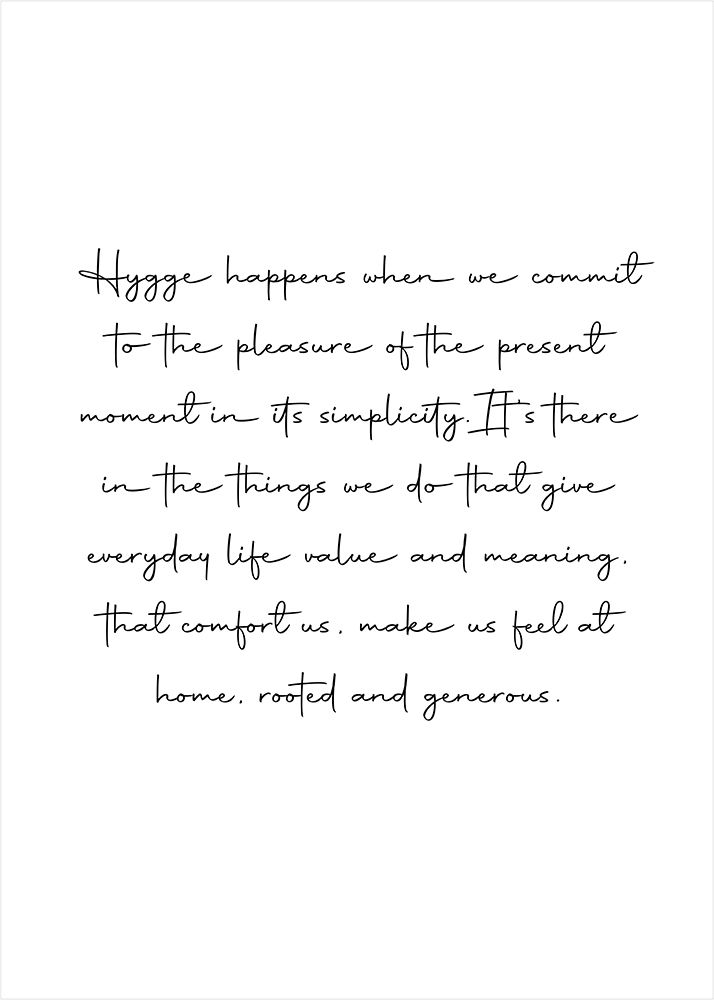 Hygge happens when we commit
to the pleasure of the present
moment in its simplicity. It's there
in the things we do that give
everyday life value and meaning,
that comfort us, make us feel at
home, rooted and generous.